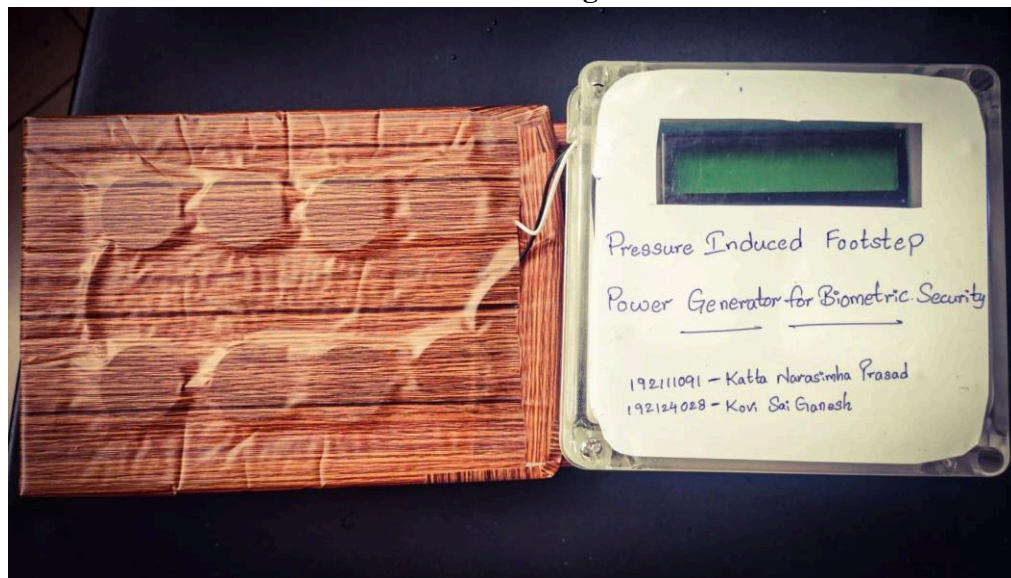 Pressure Induced Footstep
Power Generator for Biometric Security
192111091 - Katta Narasimha Prasad
192124028 - Kovi Sai Ganesh